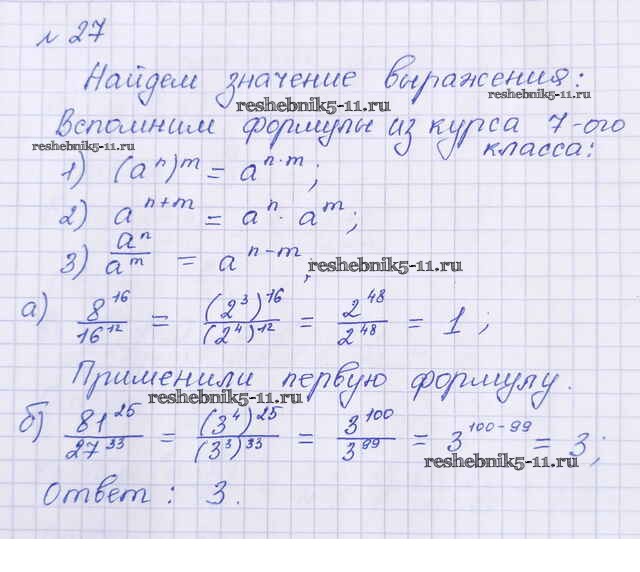 № 27
Найдем значение выражения:
reshebnik5-11.ru
reshebnik5-11.ru
Вспомним формулы из курса 7-ого
класса:
reshebnik5-11.ru
1) (aⁿ)ᵐ = aⁿ·ᵐ;
2) aⁿ⁺ᵐ = aⁿ · aᵐ;
3) aⁿ/aᵐ = aⁿ⁻ᵐ;
reshebnik5-11.ru
а) 8¹⁶/16¹² = (2³)¹⁶/(2⁴)¹² = 2⁴⁸/2⁴⁸ = 1;
Применили первую формулу.
reshebnik5-11.ru
б) 81²⁵/27³³ = (3⁴)²⁵/(3³)³³ = 3¹⁰⁰/3⁹⁹ = 3¹⁰⁰⁻⁹⁹ = 3;
reshebnik5-11.ru
Ответ: 3.